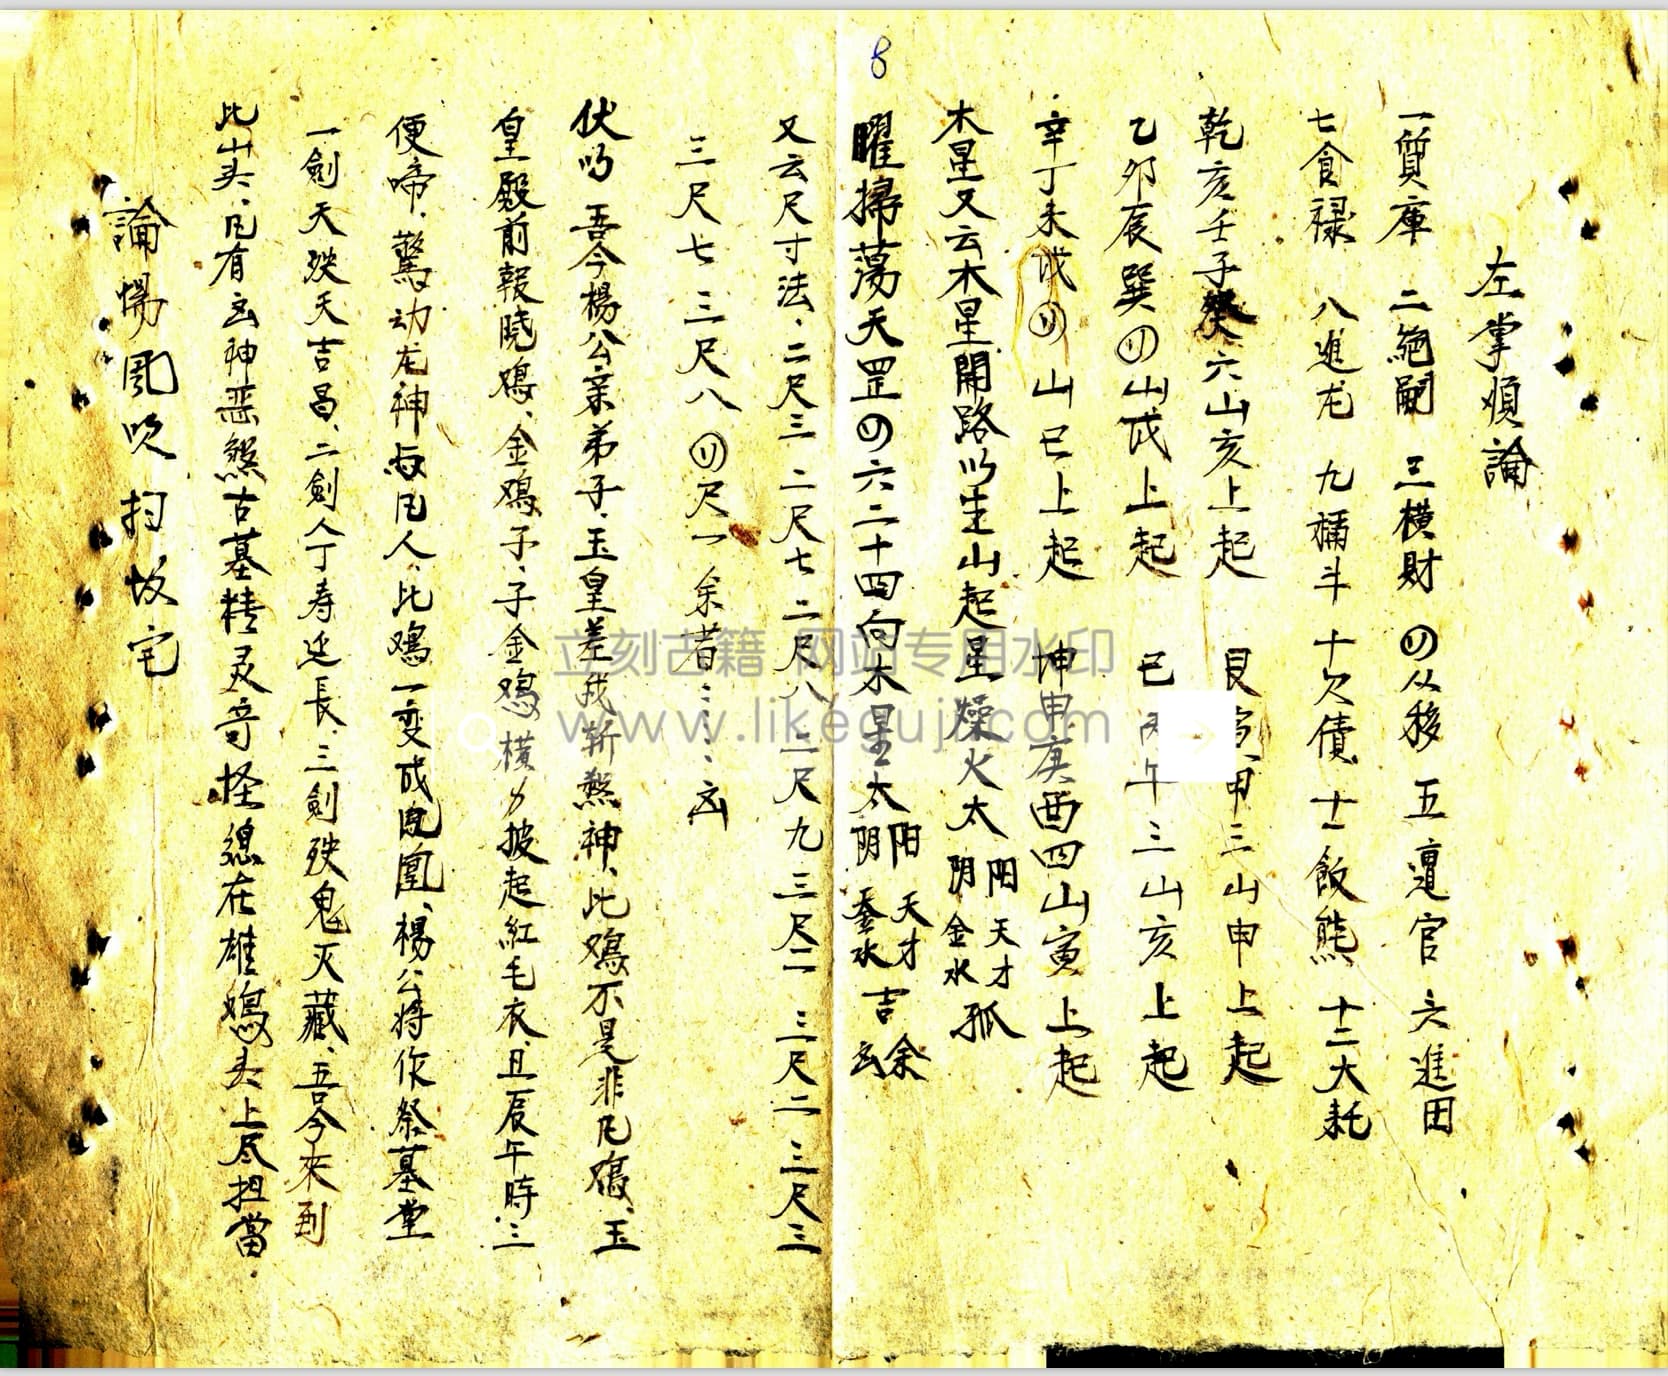 8
左掌順論
一質庫 二絕嗣 三橫財 四从移 五亶官 六進田
七食禄 八進龙 九 斗 十欠債 十一飯熊 十二大耗
乾亥壬子癸六山亥上起 艮寅甲三山申上起
乙卯辰巽四山戌上起 巳丙午三山亥上起
辛丁未戌四山巳上起 坤申庚酉四山寅上起
木星又云木星開路以坐山起星燥火太阳阴天才金水孤
曜掃蕩天罡四六二十四向木星太阳阴天才金水吉余凶
又云尺寸法、二尺三 二尺七 二尺八 二尺九 三尺一 三尺二 三尺三
三尺七 三尺八 四尺一 余者⋯⋯凶
伏以 吾今楊公亲弟子、玉皇差我斩煞神、比鸡不是非凡鸡、玉
皇殿前報曉鸡、金鸡子、子金鸡横 披起紅毛衣、丑辰午時、三
便啼、驚动龙神与凡人、比鸡一变成凤凰、楊公将作祭墓堂
一劍天殃天吉昌、二劍人丁寿延長、三劍殃鬼灭藏、五吾今來到
比山头、凡有凶神恶煞古墓精灵奇怪總在雄鸡头上尽担當
論惕風吹扫坟宅
立刻古籍 网站专用水印
www.likeguji.com